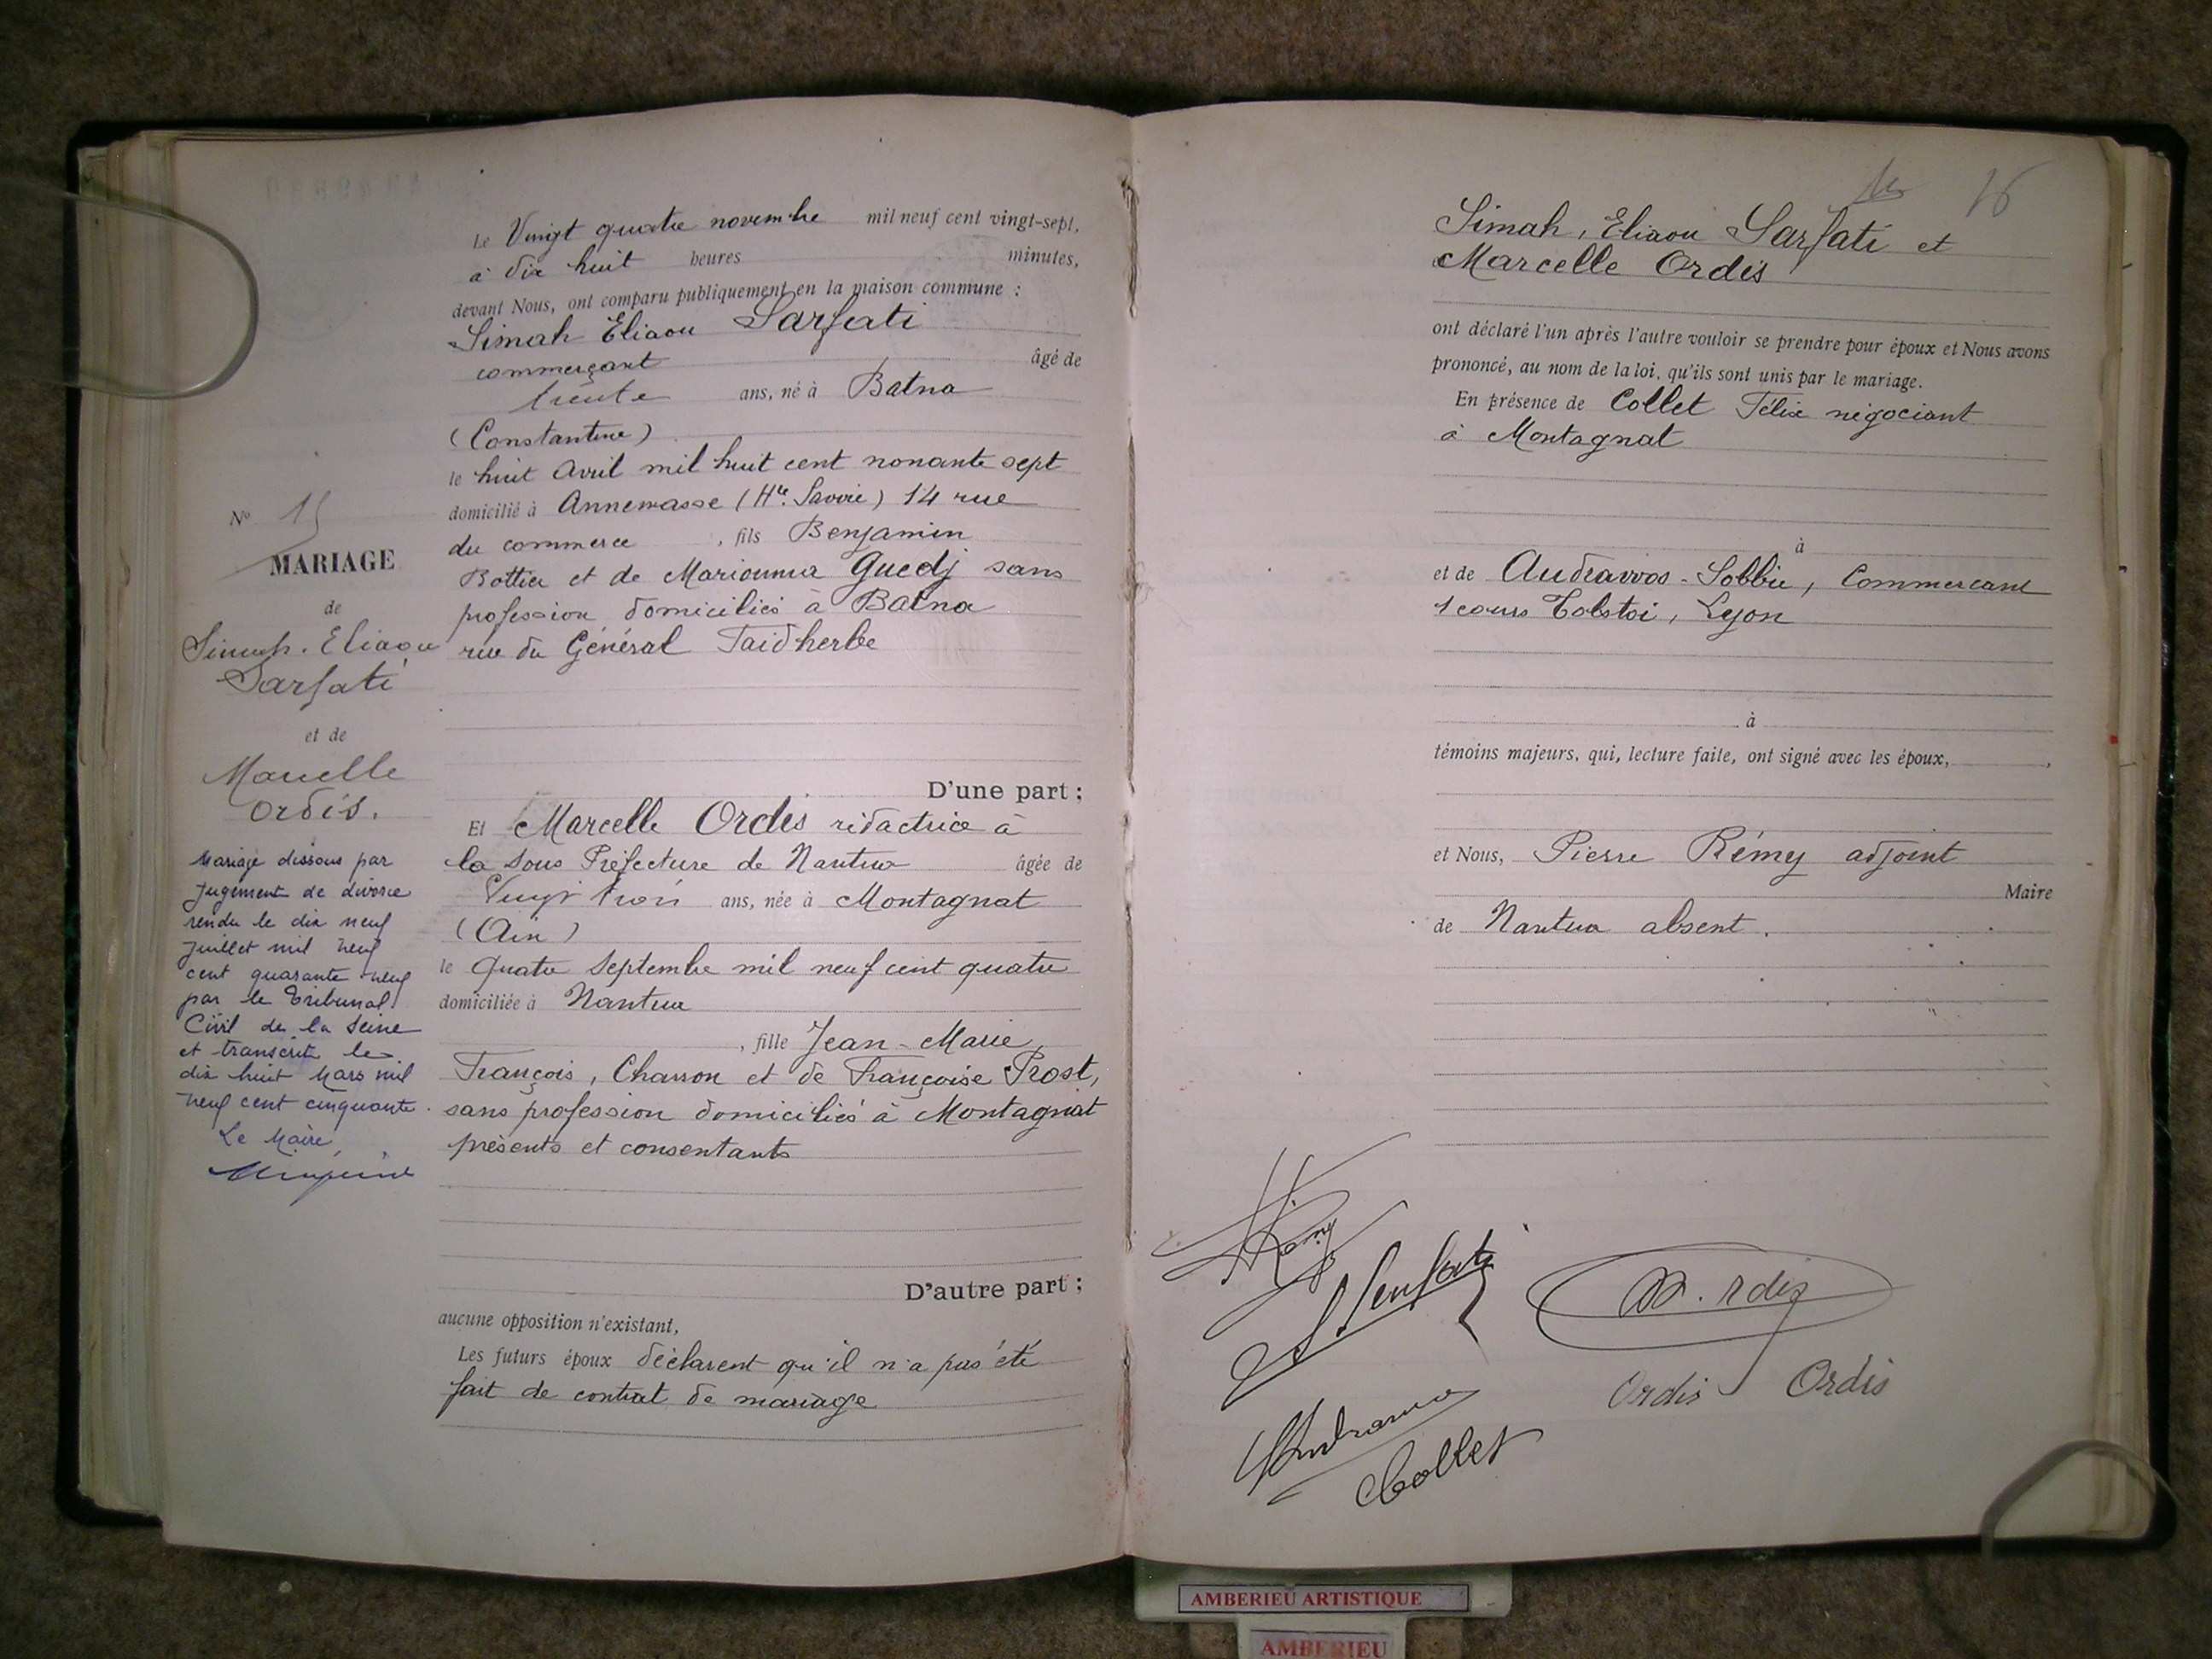 Le Vingt quatre novembre mil neuf cent vingt-sept,
à dix huit heures minutes,
devant Nous, ont comparu publiquement en la maison commune :
Simah Eliaou Sarfati
commerçant âgé de
trente ans, né à Batna
(Constantine)
le huit Avril mil huit cent nonante sept
domicilié à Annemasse (Hte. Savoie) 14 rue
du commerce , fils Benjamin
Bottier et de Mariouma Guedj sans
profession domiciliés à Batna
rue du Général Faidherbe
D'une part ;
Et Marcelle Ordis rédactrice à
la Sous Préfecture de Nantua âgée de
Vingt trois ans, née à Montagnat
(Ain)
le Quatre Septembre mil neuf cent quatre
domiciliée à Nantua
, fille Jean-Marie
François, Charron et de Françoise Prost,
sans profession domiciliés à Montagnat
présents et consentants
D'autre part ;
aucune opposition n'existant,
Les futurs époux déclarent qu'il n'a pas été
fait de contrat de mariage
No 15
MARIAGE
de
Simah. Eliaou
Sarfati
et de
Marcelle
Ordis.
Mariage dissous par
jugement de divorce
rendu le dix neuf
Juillet mil neuf
cent quarante neuf
par le Tribunal
Civil de la Seine
et transcrit le
dix huit Mars mil
neuf cent cinquante.
Le Maire
16
Simah, Eliaou Sarfati et
Marcelle Ordis
ont déclaré l'un après l'autre vouloir se prendre pour époux et Nous avons
prononcé, au nom de la loi, qu'ils sont unis par le mariage.
En présence de Collet Félix négociant
à Montagnat
à
et de Audravvos-Sobbie, Commercant
1 cours Tolstoi, Lyon
à
témoins majeurs, qui, lecture faite, ont signé avec les époux,
et Nous, Pierre Rémy adjoint
Maire
de Nantua absent.
Rémy
S Sarfati
M. Ordis
Ordis Ordis
Collet
AMBERIEU ARTISTIQUE
AMBERIEU